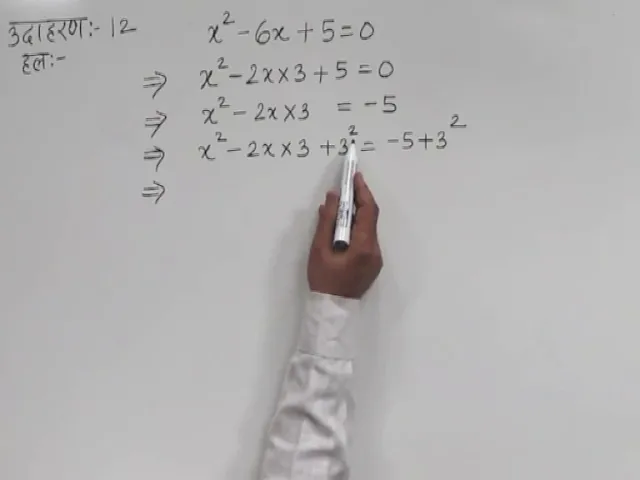 उदाहरण:- 12 x² - 6x + 5 = 0
हल:-
⇒ x² - 2x × 3 + 5 = 0
⇒ x² - 2x × 3 = -5
⇒ x² - 2x × 3 + 3² = -5 + 3²
⇒